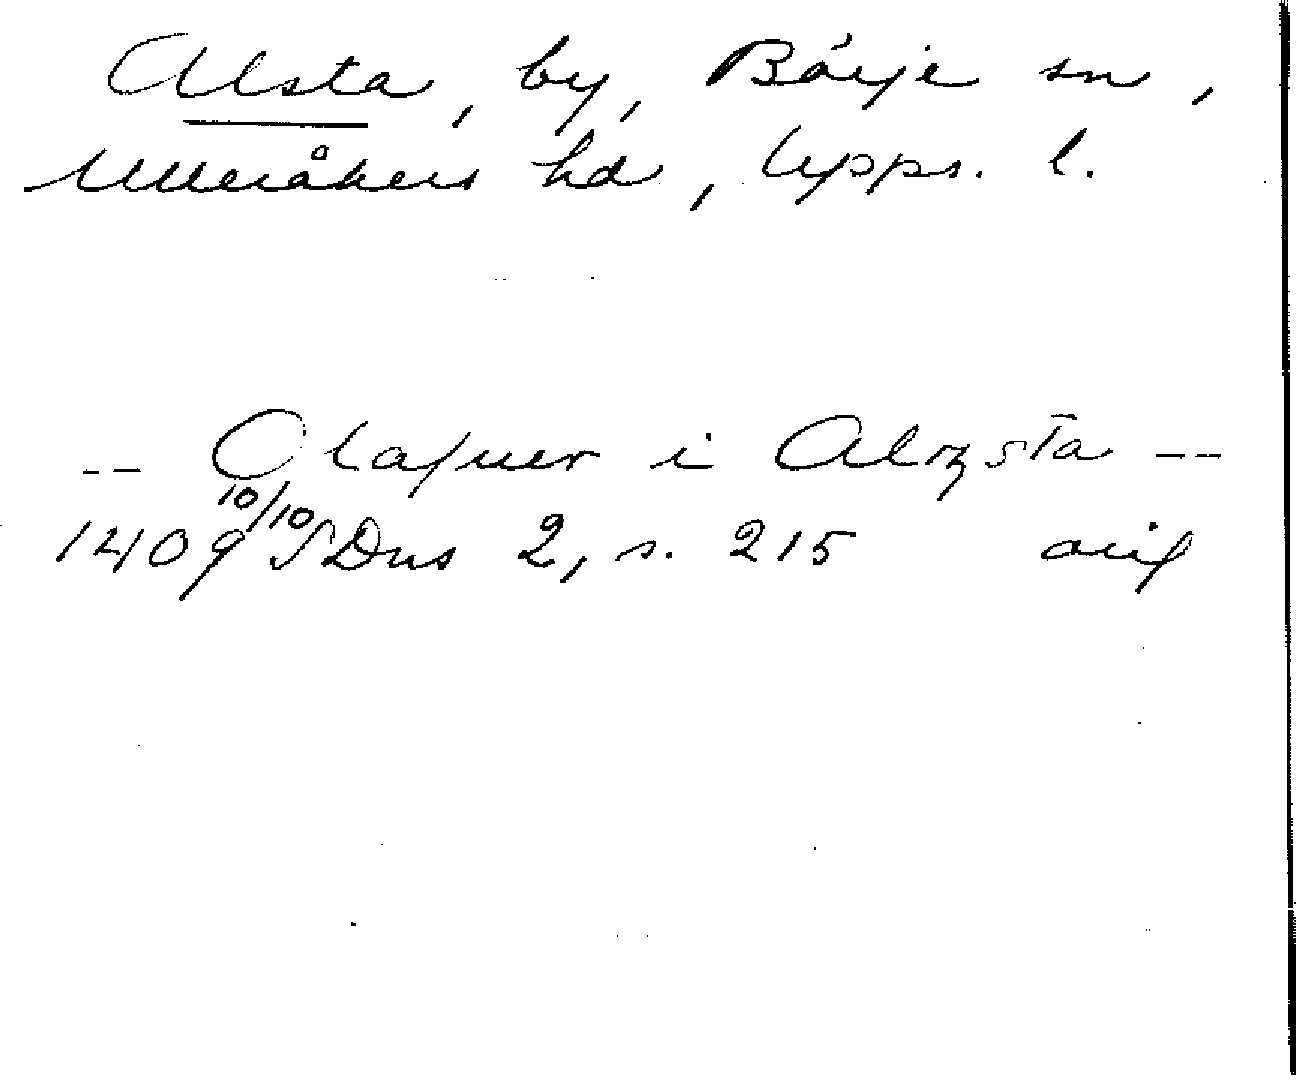 Alsta, by, Börje sn,
Ulleråkers hd, Upps. l.
-- Olafuer i Alzsta --
1409 10/10 SDns 2, s. 215